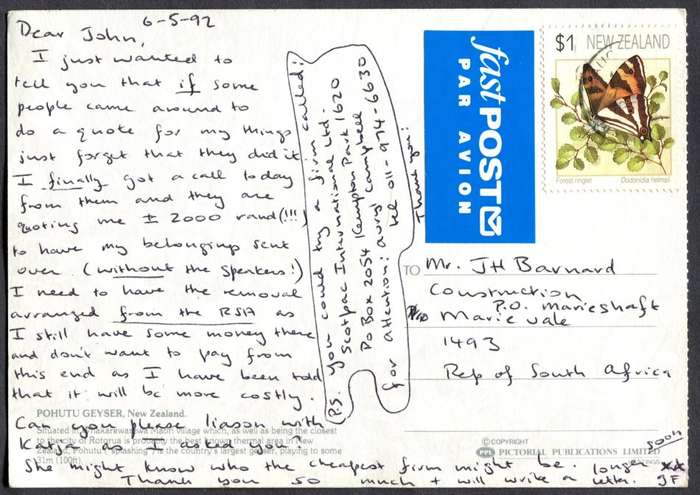 6-5-92
Dear John,
I just wanted to
tell you that if some
people came around to
do a quote for my things
just forget that they did it
I finally got a call today
from them and they are
quoting me ± 2000 rand (!!!)
to have my belongings sent
over. (without the speakers!)
I need to have the removal
arranged from the RSA as
I still have some money there
and don't want to pay from
this end as I have been told
that it will be more costly.
Can you please liason with
Katja as I asked you?
She might know who the cheapest firm might be.
Thank you so much + will write a
longer letter soon
xx
JF
P.S. you could try a firm called:
Scotpac International Ltd.
PO Box 2054 Kempton Park 1620
for attention: avryl campbell
tel 011-974-6630
Thank you:
fastPOST
PAR AVION
$1 NEW ZEALAND
Forest ringlet
Dodonidia helmsii
TO Mr. JH Barnard
Construction
P.O. Marieshaft
Marievale
1493
Rep of South Africa
POHUTU GEYSER, New Zealand.
Situated in Whakarewarewa Maori village which, as well as being the closest
to the city of Rotorua is probably the best known thermal area in New
Zealand, Pohutu ('splashing') is the country's largest geyser, playing to some
31m (100ft).
© COPYRIGHT
PICTORIAL PUBLICATIONS LIMITED